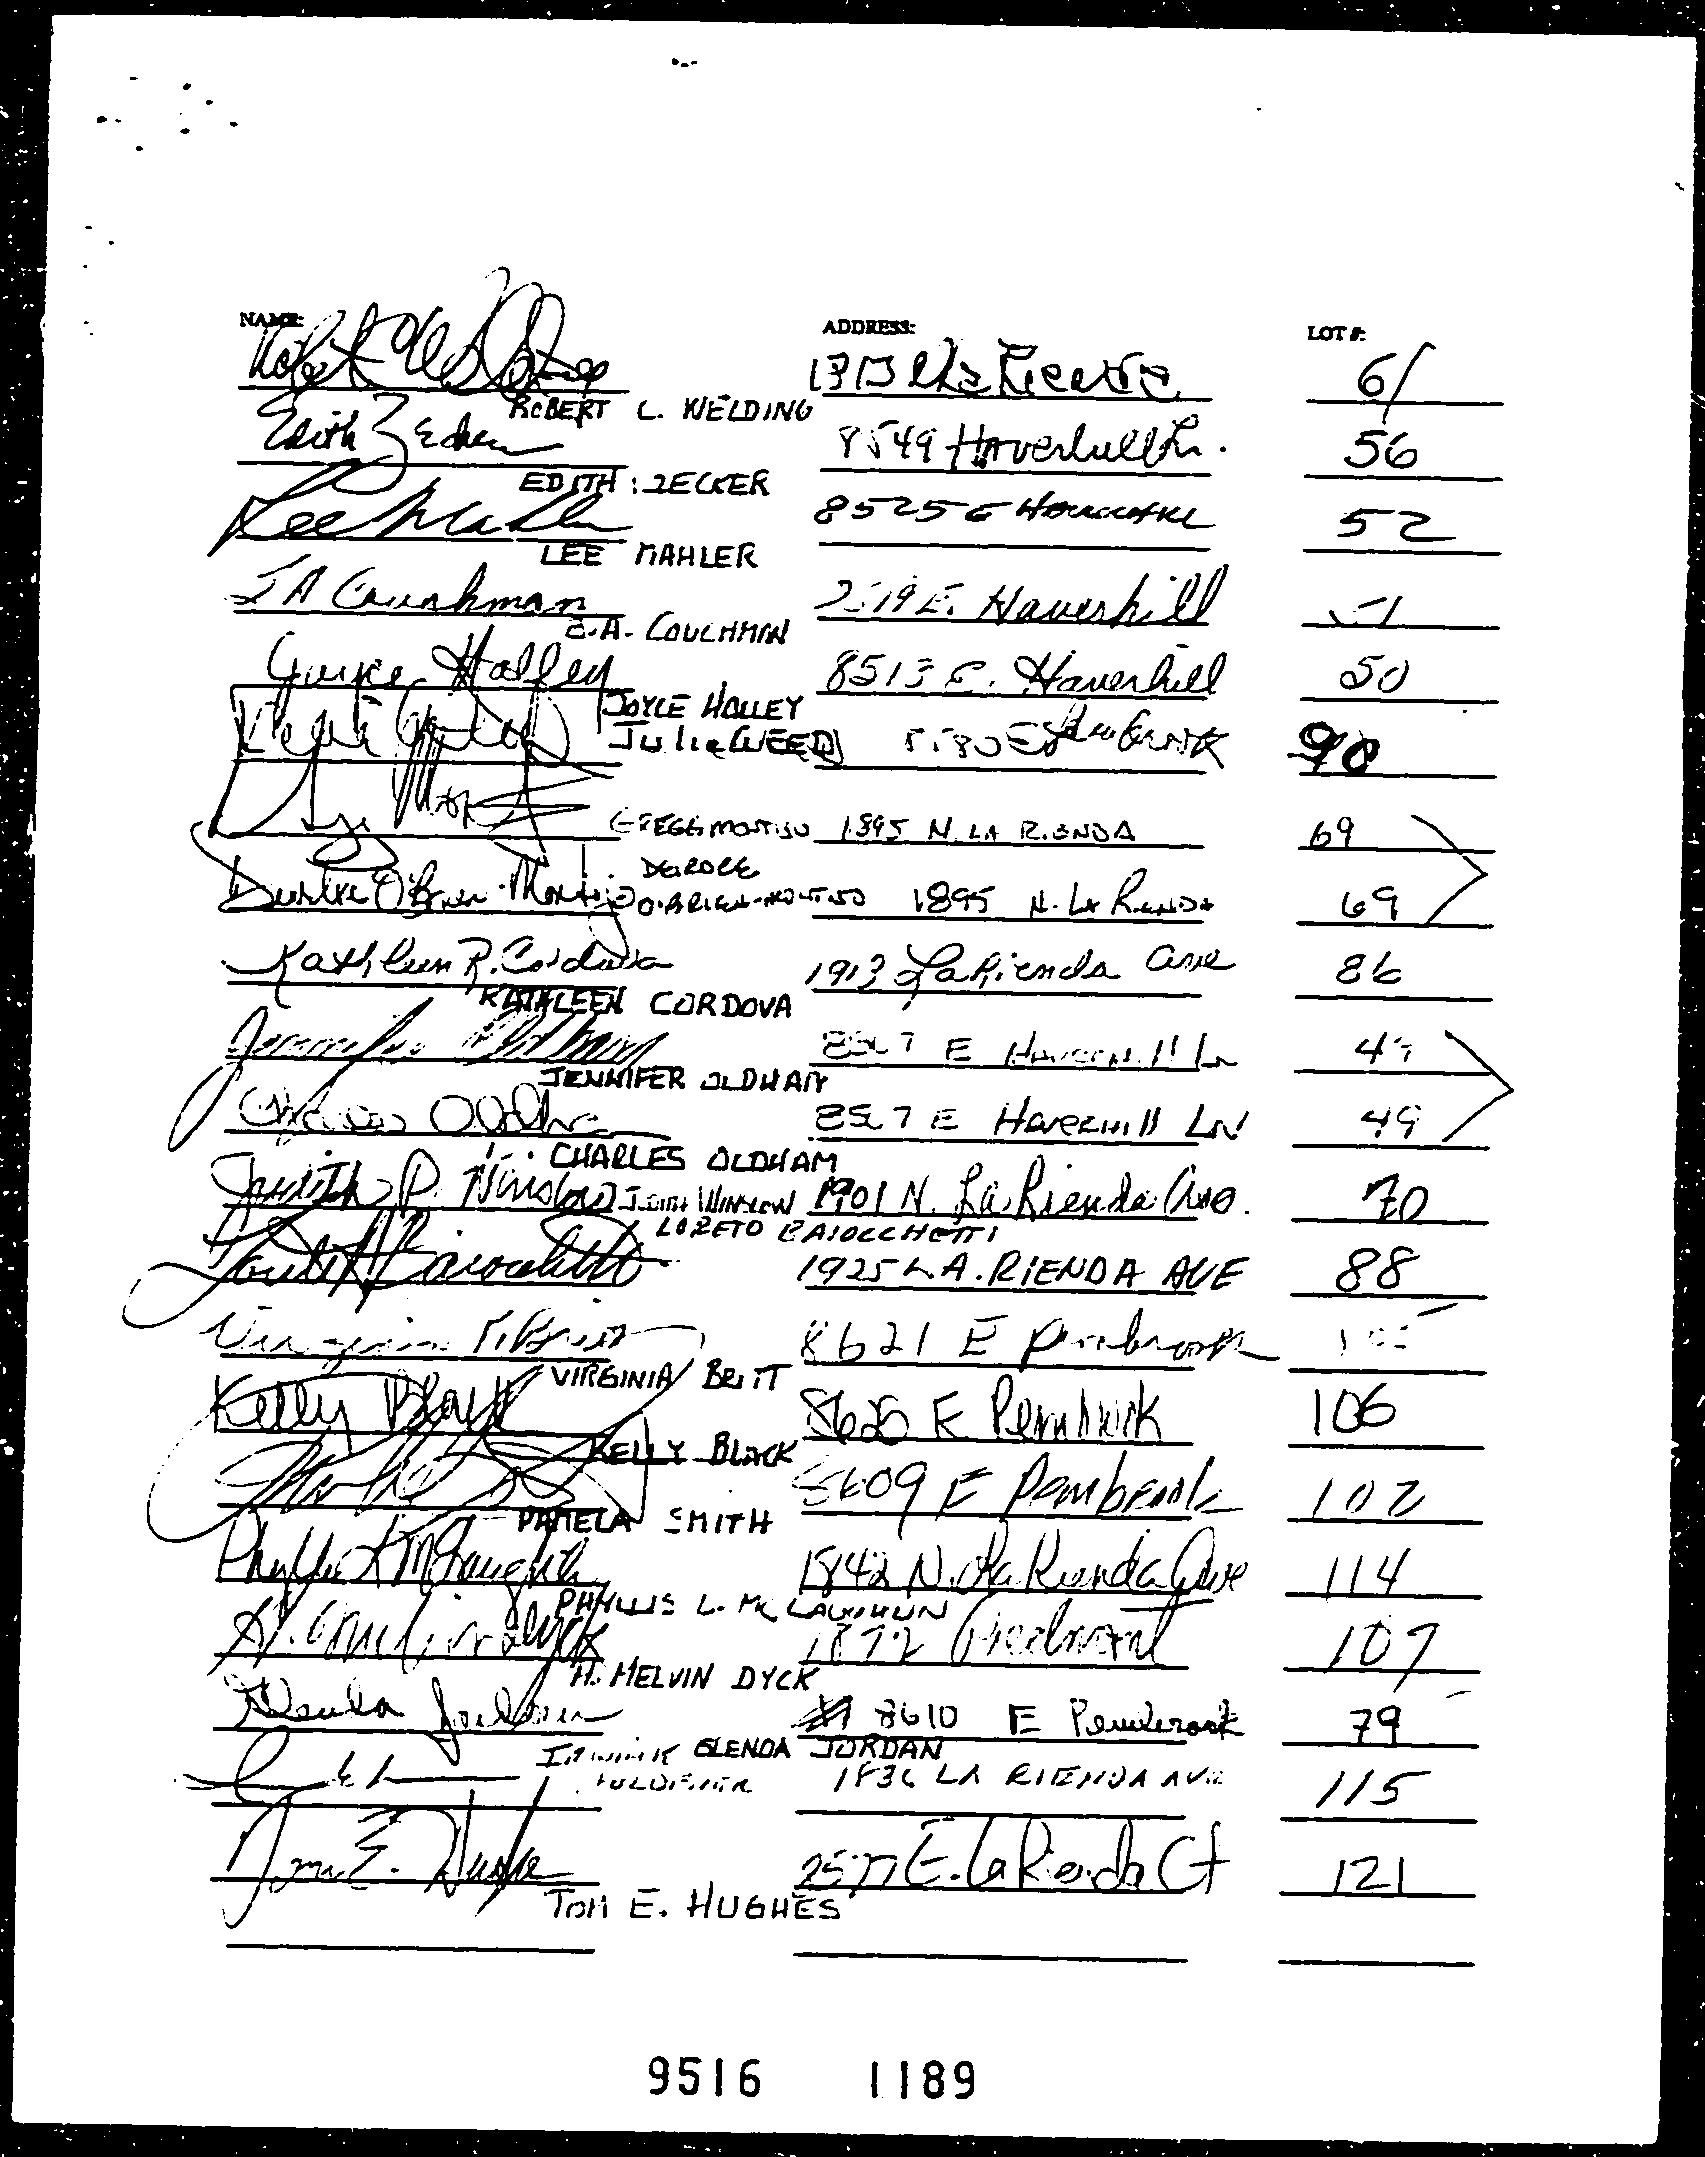 NAME: ADDRESS: LOT #:
61
ROBERT L. WELDING
Edith Zecker 8549 Haverhill Ln. 56
EDITH ZECKER
Lee Mahler 8525 E 52
LEE MAHLER
J A Couchman E. Haverhill 51
J.A. COUCHMAN
Joyce Holley 8513 E. Haverhill 50
JOYCE HOLLEY
Julia WEED 90
GREGG MONTIJO 1895 N. LA RIENDA 69
DEIRDRE
Deirdre O'Brien-Montijo O'BRIEN-MONTIJO 1895 N. La RIENDA 69
Kathleen R. Cordova 1913 La Rienda Ave 86
KATHLEEN CORDOVA
Jennifer Oldham E Haverhill Ln 49
JENNIFER OLDHAM
Charles Oldham E Haverhill LN 49
CHARLES OLDHAM
Judith P. Winslow JUDITH WINSLOW 1901 N. La Rienda Ave. 70
LORETO BAIOCCHETTI
1925 LA. RIENDA AVE 88
Virginia Britt 8621 E Pembrook
VIRGINIA BRITT
Kelly Black E Pembrook 106
KELLY BLACK
8609 E Pembrook 102
PAMELA SMITH
Phyllis L McLaughlin 1842 N. La Rienda Ave 114
PHYLLIS L. McLAUGHLIN
H. Melvin Dyck 1872 Piedmont 107
H. MELVIN DYCK
Glenda Jordan 8610 E Pembrook 79
GLENDA JORDAN
1836 LA RIENDA AVE 115
Tom E. Hughes E. La Rienda Ct 121
TOM E. HUGHES
9516 1189